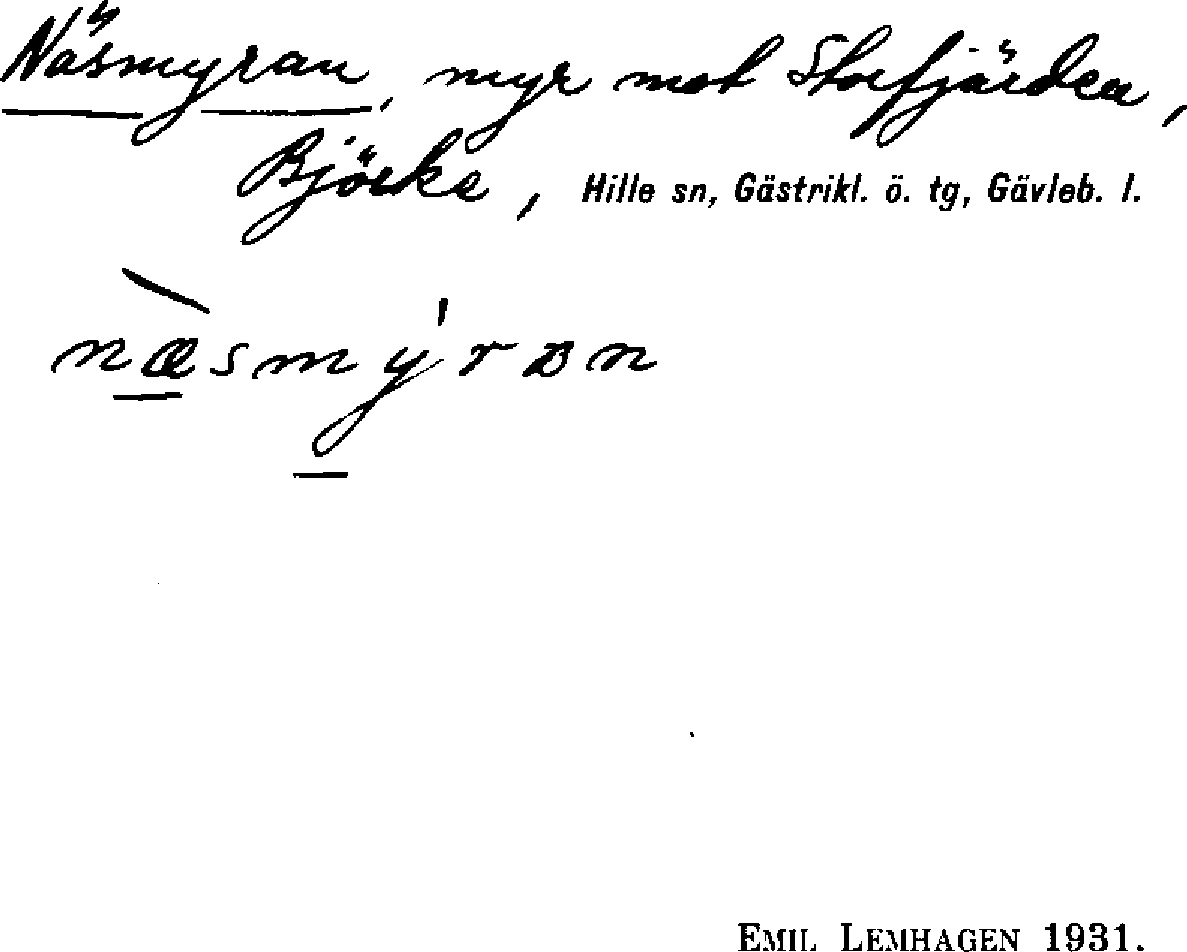 Näsmyran, myr mot Storfjärden,
Björke, Hille sn, Gästrikl. ö. tg, Gävleb. l.
næ̀smy̍rɒn
EMIL LEMHAGEN 1931.